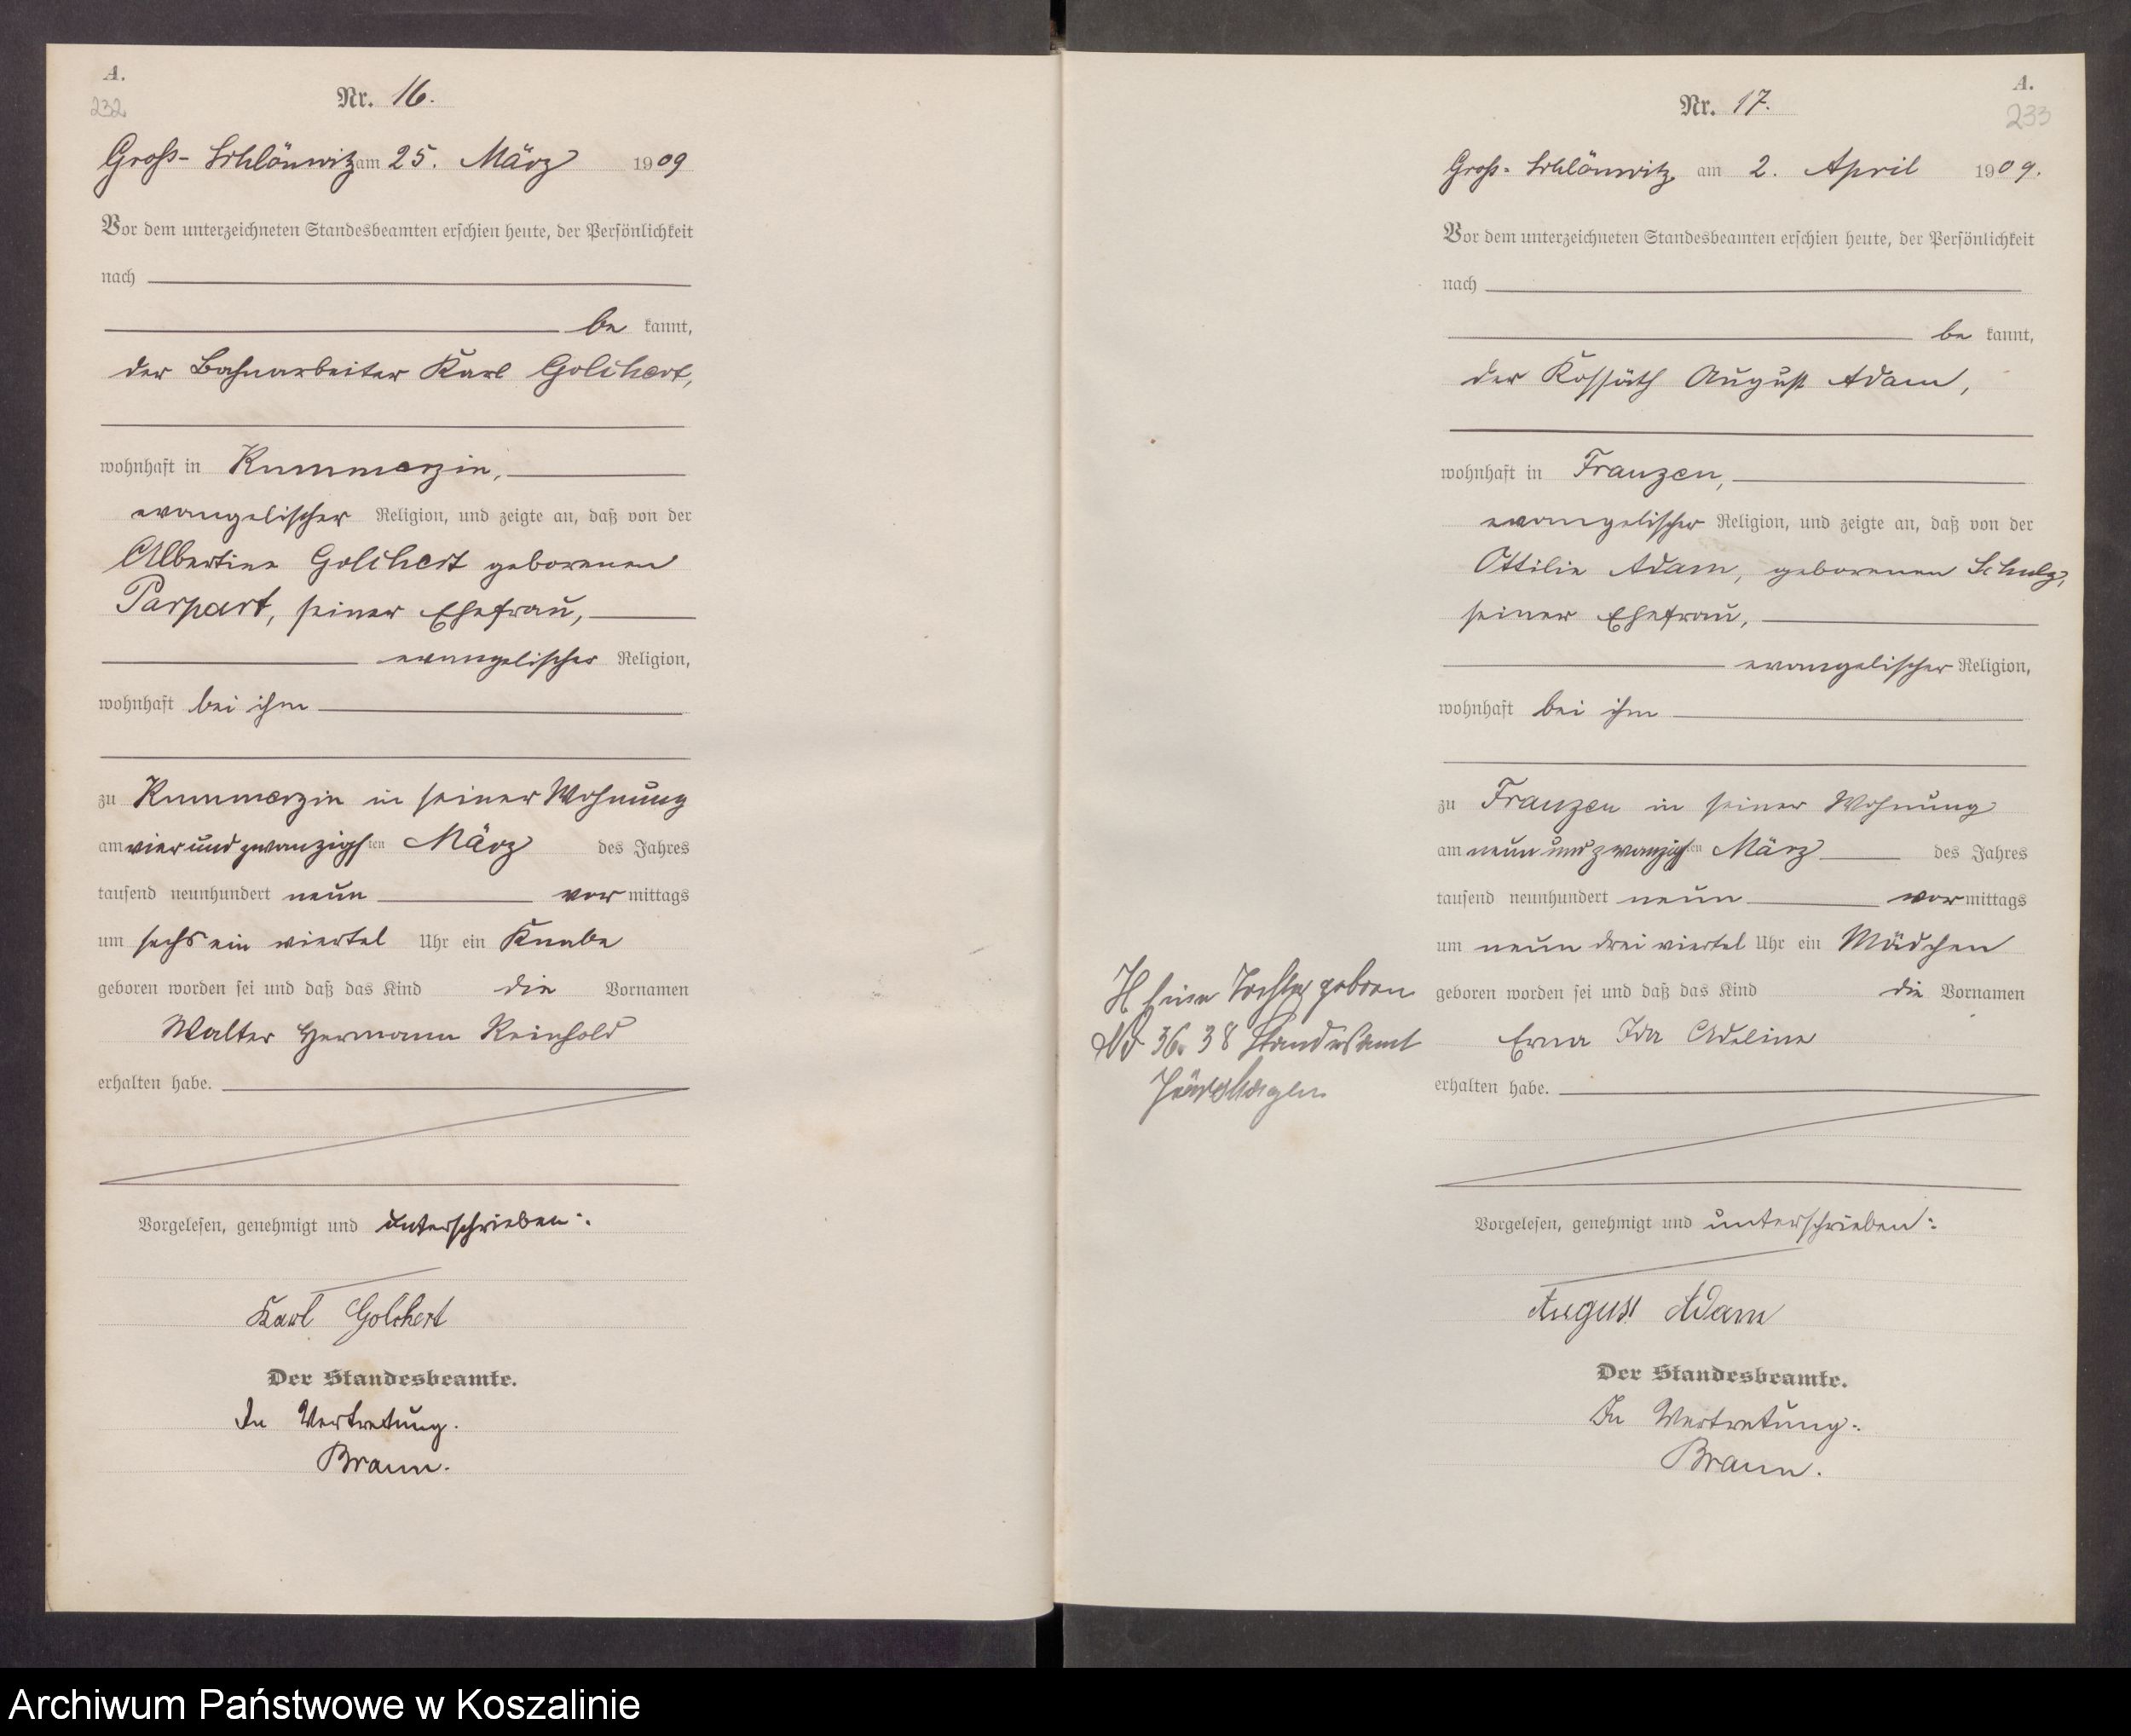 A.
232
Nr. 16.
Groß-Schlönwitz am 25. März 1909
Vor dem unterzeichneten Standesbeamten erschien heute, der Persönlichkeit
nach
be kannt,
der Bahnarbeiter Karl Golchert,
wohnhaft in Kummerzin,
evangelischer Religion, und zeigte an, daß von der
Albertine Golchert geborenen
Parpart, seiner Ehefrau,
evangelischer Religion,
wohnhaft bei ihm
zu Kummerzin in seiner Wohnung
am vierundzwanzigsten März des Jahres
tausend neunhundert neun vor mittags
um sechs ein viertel Uhr ein Knabe
geboren worden sei und daß das Kind die Vornamen
Walter Hermann Reinhold
erhalten habe.
Vorgelesen, genehmigt und unterschrieben:
Karl Golchert
Der Standesbeamte.
In Vertretung.
Braun.
A.
233
Nr. 17.
Groß-Schlönwitz am 2. April 1909.
Vor dem unterzeichneten Standesbeamten erschien heute, der Persönlichkeit
nach
be kannt,
der Kossäth August Adam,
wohnhaft in Franzen,
evangelischer Religion, und zeigte an, daß von der
Ottilie Adam, geborenen Schulz,
seiner Ehefrau,
evangelischer Religion,
wohnhaft bei ihm
zu Franzen in seiner Wohnung
am neunundzwanzigsten März des Jahres
tausend neunhundert neun vor mittags
um neun drei viertel Uhr ein Mädchen
geboren worden sei und daß das Kind die Vornamen
Erna Ida Adeline
erhalten habe.
Vorgelesen, genehmigt und unterschrieben:
August Adam
Der Standesbeamte.
In Vertretung:
Braun.
eine Tochter geboren
36.38 Standesamt
Archiwum Państwowe w Koszalinie